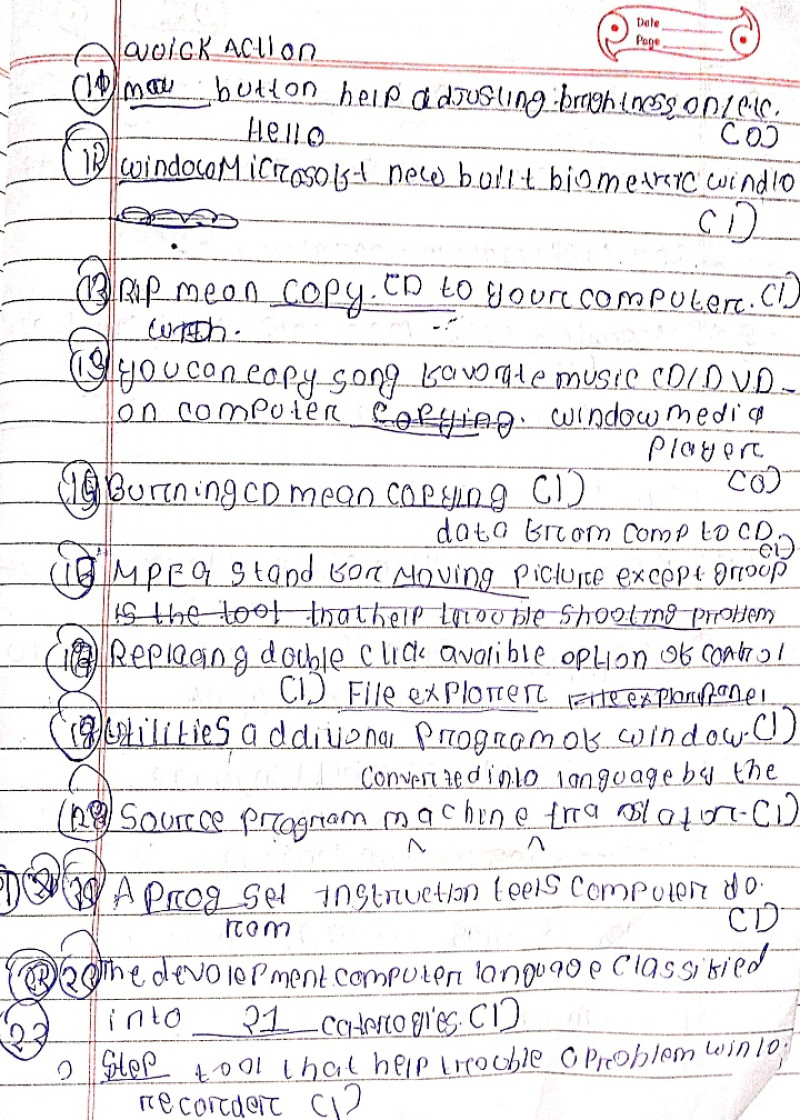 Date
Page
QUICK ACTION
(11) button help adjusting brightness on/etc.
Hello (0)
(12) window Microsoft new built biometric wind10
(1)
(13) Rip mean copy. CD to your computer. (1)
with.
you can copy song favorate music CD/DVD
on computer copying. window media
player
(0)
Burning CD mean copying (1)
data from comp to CD.
(1)
MPEG stand for Moving picture except group
is the tool that help trouble shooting problem
Replacing double click avalible option of control
(1) File explorer
Utilities additional program of window. (1)
converted into language by the
Source program machine translator. (1)
A prog set instruction tells computer do.
(1)
The devolepment computer language classified
23 into 21 caterrogies. (1)
Step tool that help trouble a problem win10.
recorder (1)